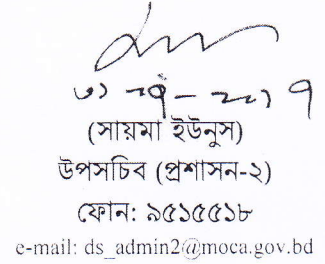 (সায়মা ইউনুস)
উপসচিব (প্রশাসন-২)
ফোন: ৯৫১৫৫১৮
e-mail: ds_admin2@moca.gov.bd